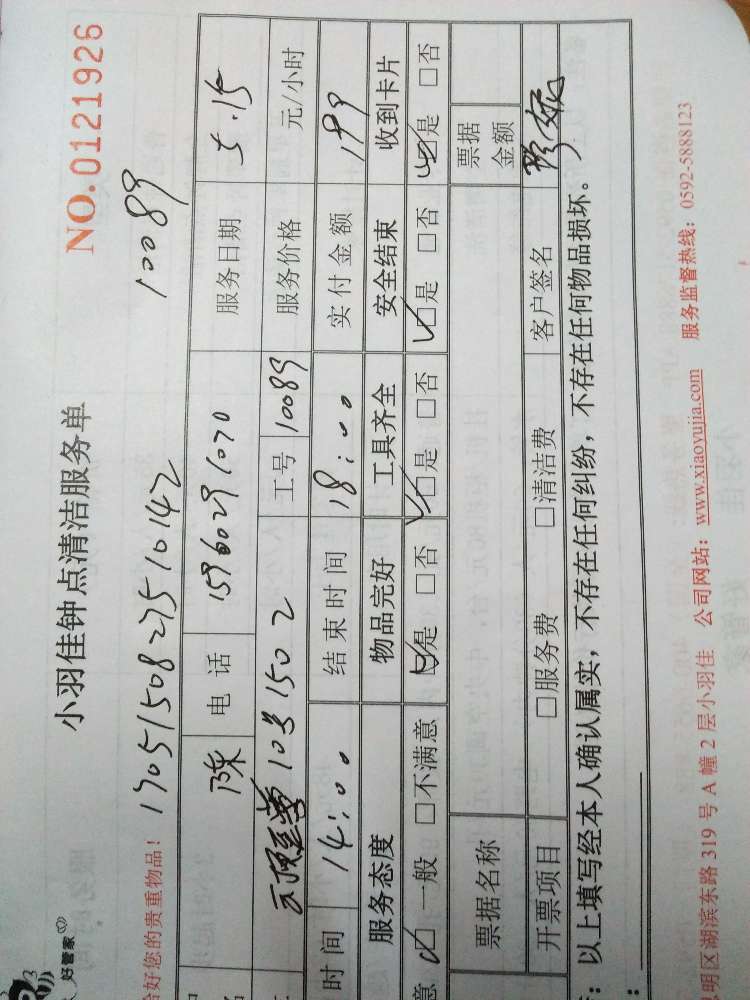 好管家
小羽佳钟点清洁服务单
NO.0121926
恰好您的贵重物品! 1705150827510142 10089
陈 电 话 15960291070 服务日期 5.15
10号1502 工号 10089 服务价格 元/小时
时间 14:00 结束时间 18:00 实付金额 199
服务态度 物品完好 工具齐全 安全结束 收到卡片
意 □一般 □不满意 □是 □否 □是 □否 □是 □否 □是 □否
票据名称 票据金额
开票项目 □服务费 □清洁费 客户签名
:以上填写经本人确认属实,不存在任何纠纷,不存在任何物品损坏。
明区湖滨东路 319 号 A 幢 2 层小羽佳 公司网站:www.xiaoyujia.com 服务监督热线:0592-5888123